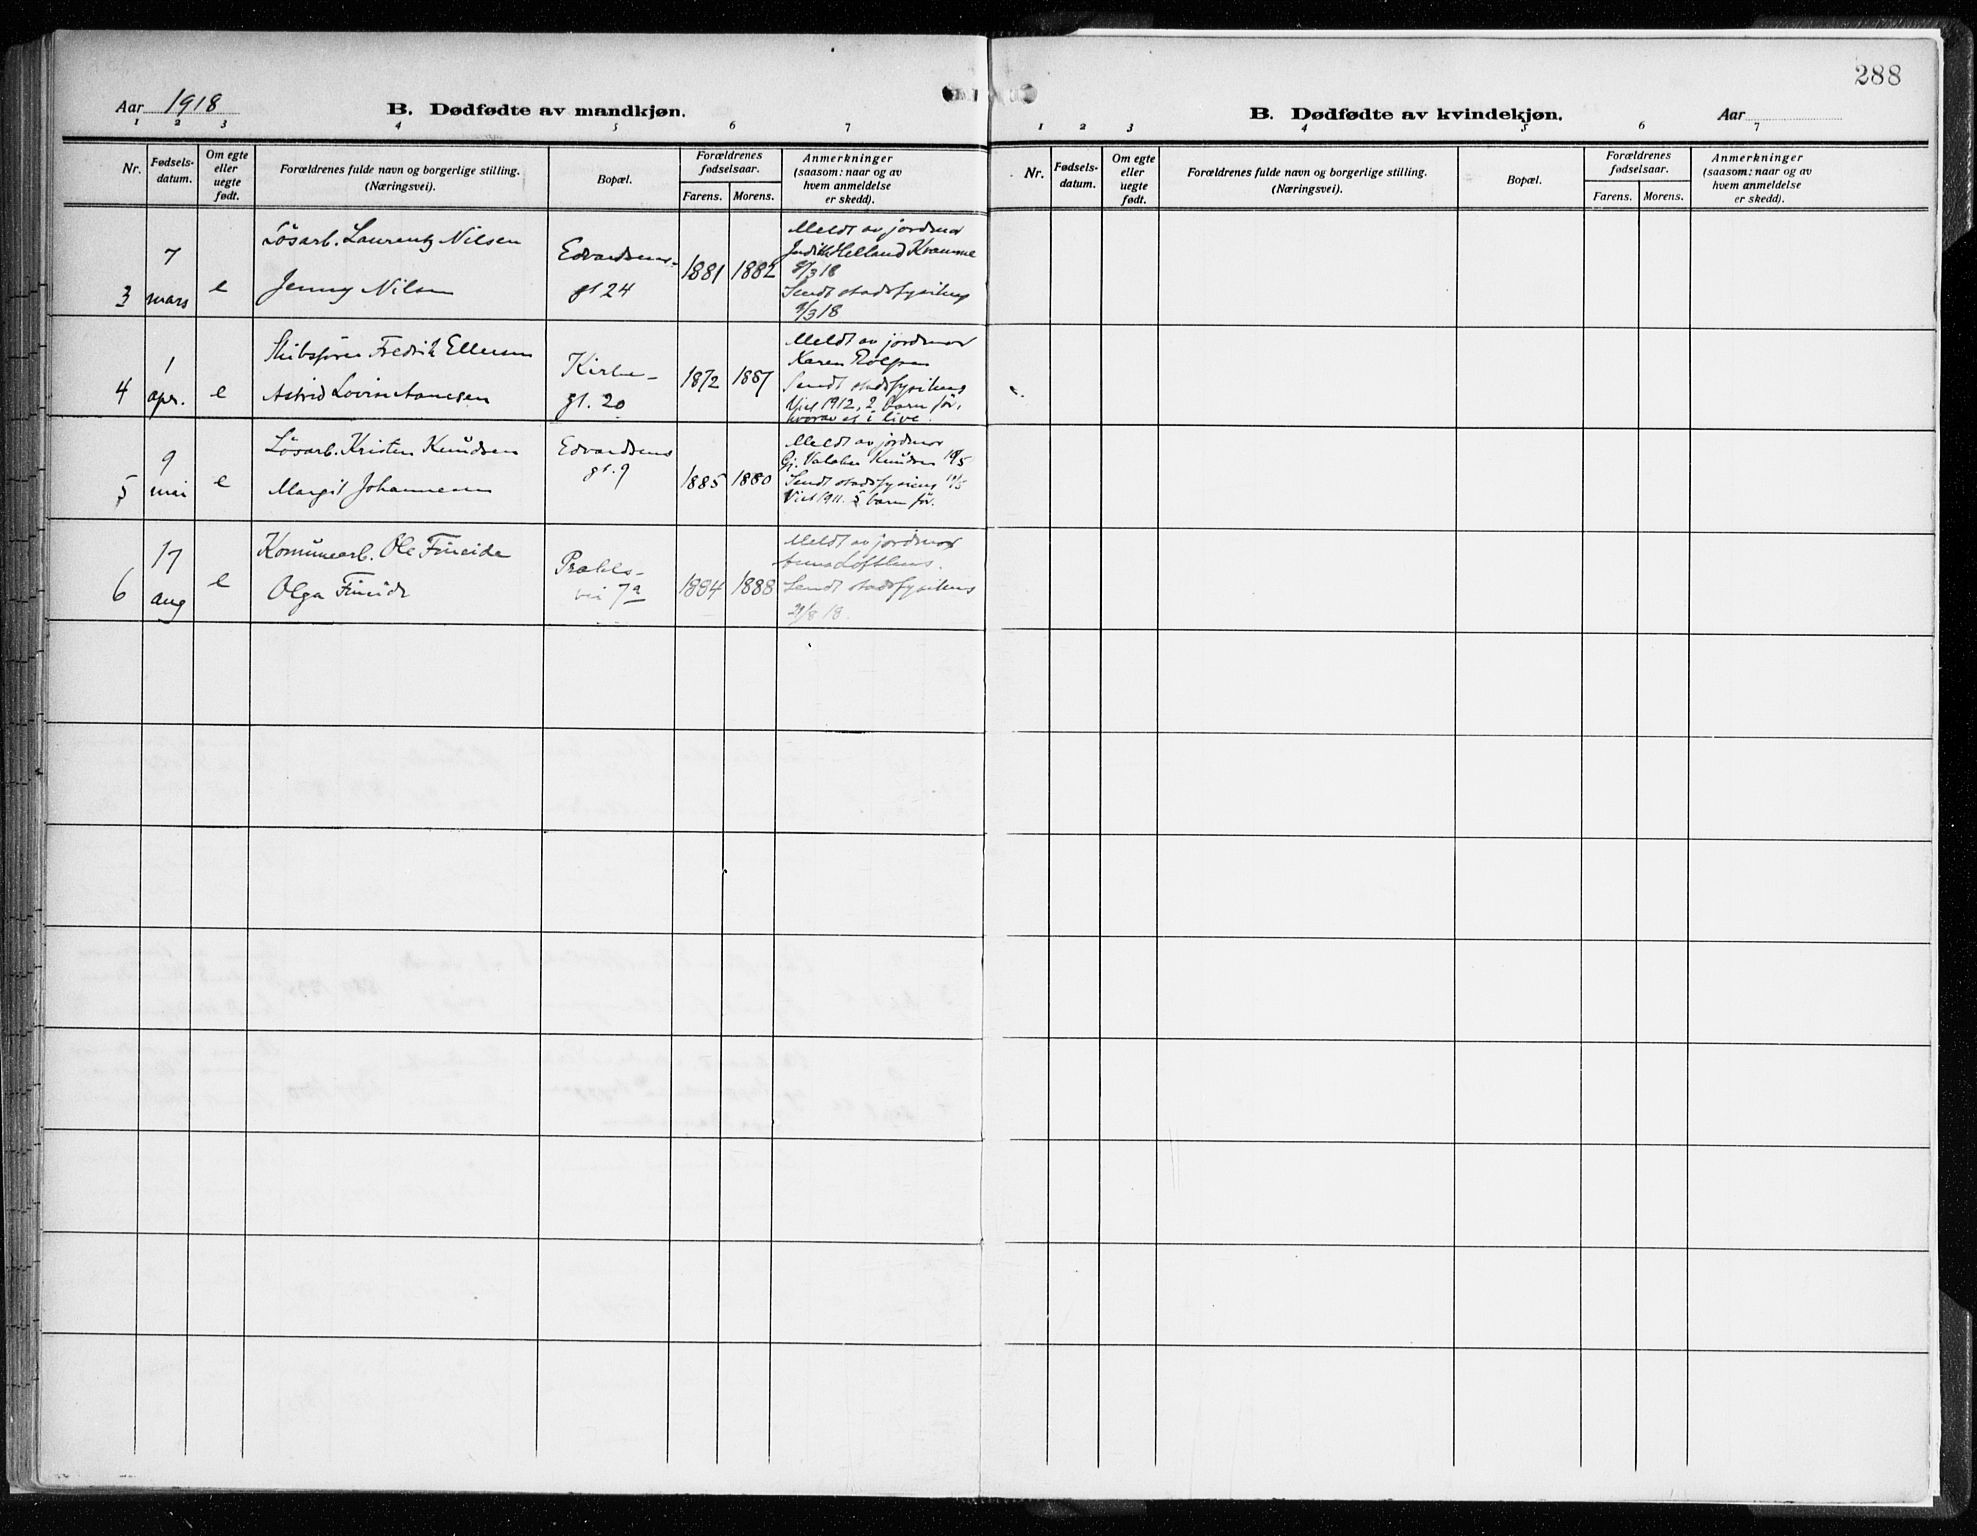 288
Aar 1918
B. Dødfødte av mandkjøn.
1 2 3 4 5 6 7
Nr.
Fødsels-
datum.
Om egte
eller
uegte
født.
Forældrenes fulde navn og borgerlige stilling.
(Næringsvei).
Bopæl.
Forældrenes
fødselsaar.
Farens. Morens.
Anmerkninger
(saasom: naar og av
hvem anmeldelse
er skedd).
3
7
mars
e
Løsarb. Laurentz Nilsen
Jenny Nilsen
Edvardsens-
gt 24
1881 1882
Meldt av jordmor
Judith Helland Kramme
8/3 18
Sendt stadsfysikus
9/3 18
4
1
apr.
e
Skibsfører Fredrik Ellensen
Astrid Lovise
Kirke-
gt. 20
1872 1887
Meldt av jordmor
Karen
Sendt stadsfysikus
Viet 1912, 2 barn før,
hvorav et i live.
5
9
mai
e
Løsarb. Kristen Knudsen
Margit Johannesen
Edvardsens
gt. 9
1885 1880
Meldt av jordmor
Knudsen
Sendt stadsfysikus
Viet 1911. 5 barn før.
6
17
aug
e
Komunearb. Ole Fineide
Olga Fineide
Prahls-
vei 7a
1884 1888
Meldt av jordmor
Anna Lofthus.
Sendt stadsfysikus
21/8 18.
B. Dødfødte av kvindekjøn.
Aar
1 2 3 4 5 6 7
Nr.
Fødsels-
datum.
Om egte
eller
uegte
født.
Forældrenes fulde navn og borgerlige stilling.
(Næringsvei).
Bopæl.
Forældrenes
fødselsaar.
Farens. Morens.
Anmerkninger
(saasom: naar og av
hvem anmeldelse
er skedd).